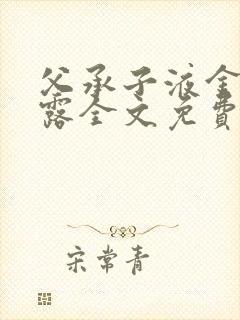 父承子液金
露全文免费
宋常青